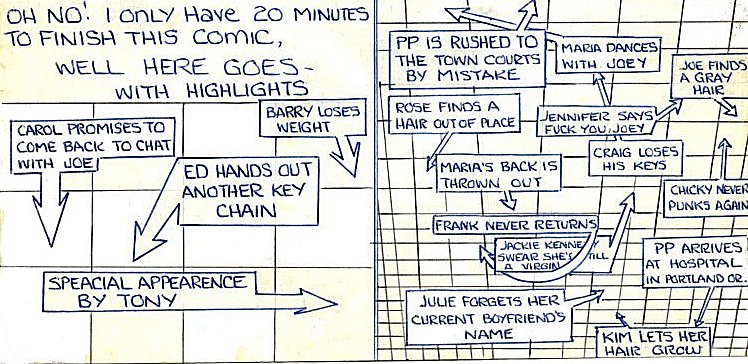 OH NO! I ONLY HAVE 20 MINUTES
TO FINISH THIS COMIC,
WELL HERE GOES-
WITH HIGHLIGHTS
BARRY LOSES
WEIGHT
CAROL PROMISES TO
COME BACK TO CHAT
WITH JOE
ED HANDS OUT
ANOTHER KEY
CHAIN
SPEACIAL APPEARENCE
BY TONY
PP IS RUSHED TO
THE TOWN COURTS
BY MISTAKE
MARIA DANCES
WITH JOEY
JOE FINDS
A GRAY
HAIR
ROSE FINDS A
HAIR OUT OF PLACE
JENNIFER SAYS
FUCK YOU, JOEY
CRAIG LOSES
HIS KEYS
MARIA'S BACK IS
THROWN OUT
CHICKY NEVER
PUNKS AGAIN
FRANK NEVER RETURNS
JACKIE KENNEDY
SWEAR SHE'S STILL
A VIRGIN
PP ARRIVES
AT HOSPITAL
IN PORTLAND OR.
JULIE FORGETS HER
CURRENT BOYFRIEND'S
NAME
KIM LETS HER
HAIR GROW